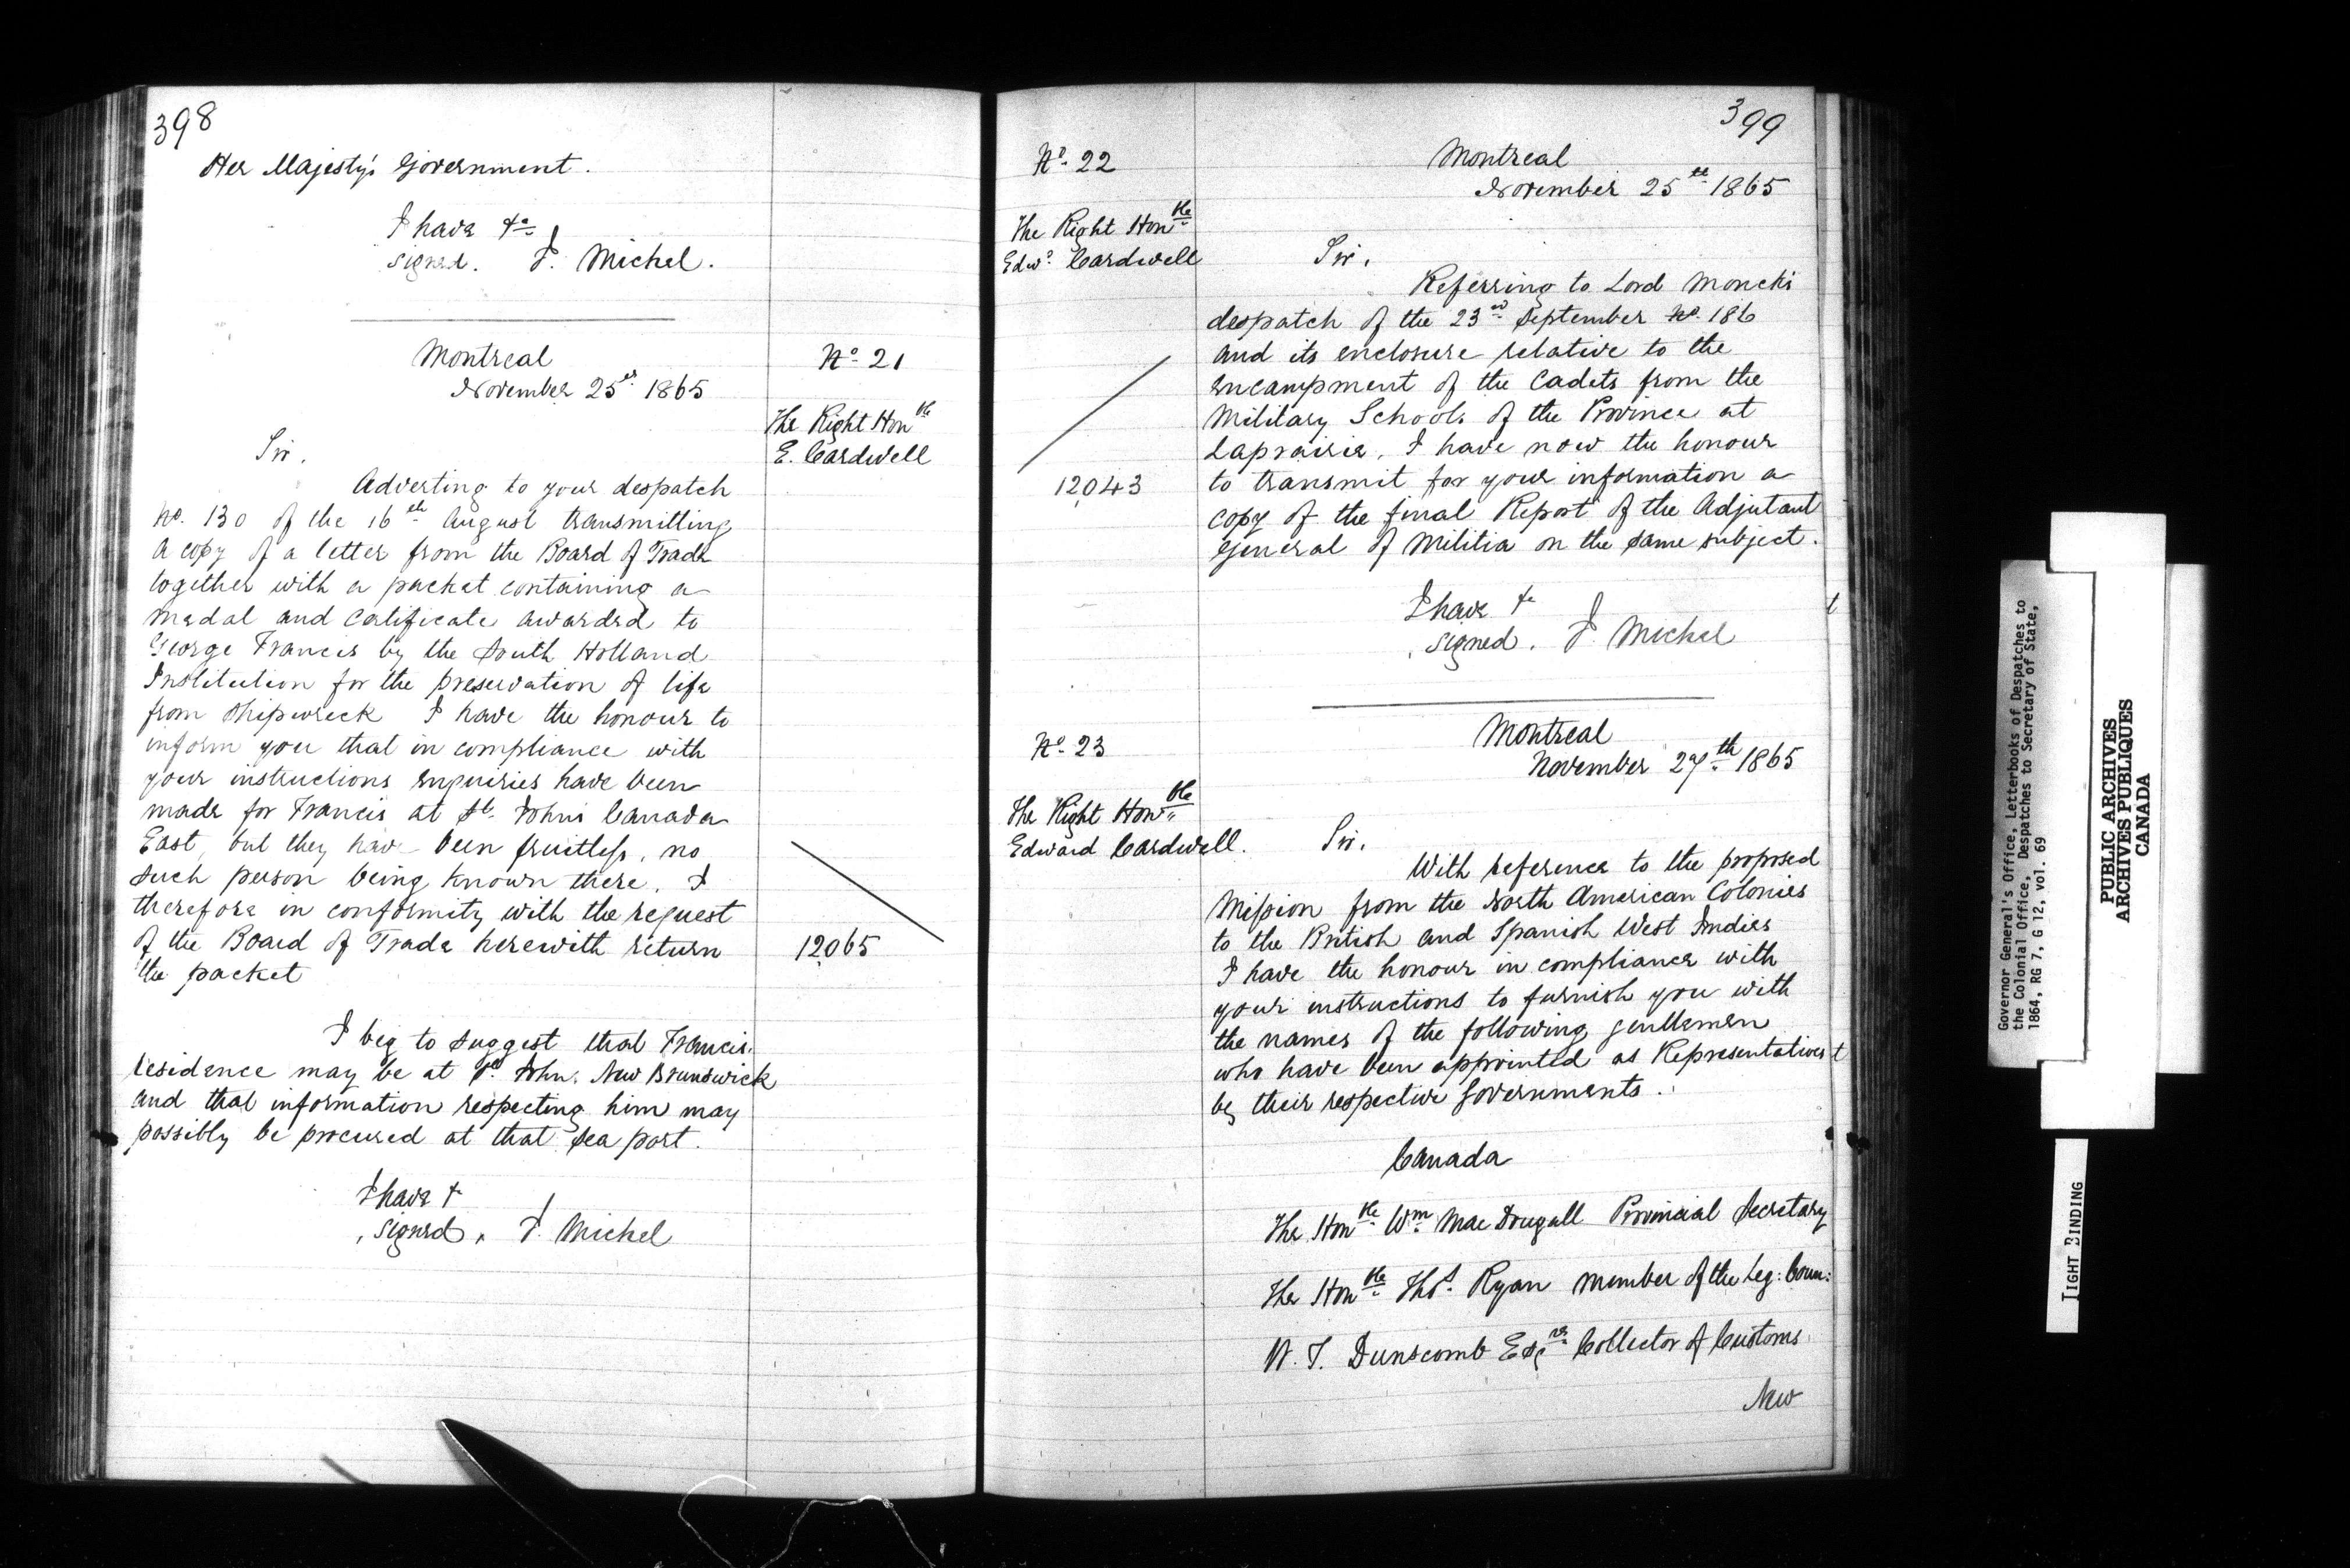 398
Her Majesty's Government.
I have &c
signed. J. Michel.
Montreal
November 25th 1865
No 21
The Right Honble
E. Cardwell
Sir,
Adverting to your despatch
No. 130 of the 16th August transmitting
a copy of a letter from the Board of Trade
together with a packet containing a
medal and certificate awarded to
George Francis by the South Holland
Institution for the preservation of life
from shipwreck I have the honour to
inform you that in compliance with
your instructions enquiries have been
made for Francis at St. Johns Canada
East, but they have been fruitless, no
such person being known there. I
therefore in conformity with the request
of the Board of Trade herewith return
12065
the packet
I beg to suggest that Francis'
residence may be at St. John, New Brunswick
and that information respecting him may
possibly be procured at that sea port.
I have &
signed, J. Michel
399
No 22
Montreal
November 25th 1865
The Right Honble
Edwd Cardwell
Sir,
Referring to Lord Monck's
despatch of the 23rd September No. 186
and its enclosure relative to the
encampment of the Cadets from the
Military Schools of the Province at
Laprairie, I have now the honour
to transmit for your information a
12043
copy of the final Report of the Adjutant
General of Militia on the same subject.
I have &c
signed. J. Michel
No 23
Montreal
November 27th 1865
The Right Honble
Edward Cardwell.
Sir,
With reference to the proposed
Mission from the North American Colonies
to the British and Spanish West Indies
I have the honour in compliance with
your instructions to furnish you with
the names of the following gentlemen
who have been appointed as Representatives
by their respective Governments.
Canada
The Honble Wm MacDougall Provincial Secretary
The Honble Thos. Ryan member of the Leg: Coun:
W. T. Dunscomb Esqre Collector of Customs
New
Governor General's Office, Letterbooks of Despatches to
the Colonial Office, Despatches to Secretary of State,
1864, RG 7, G 12, vol. 69
PUBLIC ARCHIVES
ARCHIVES PUBLIQUES
CANADA
TIGHT BINDING